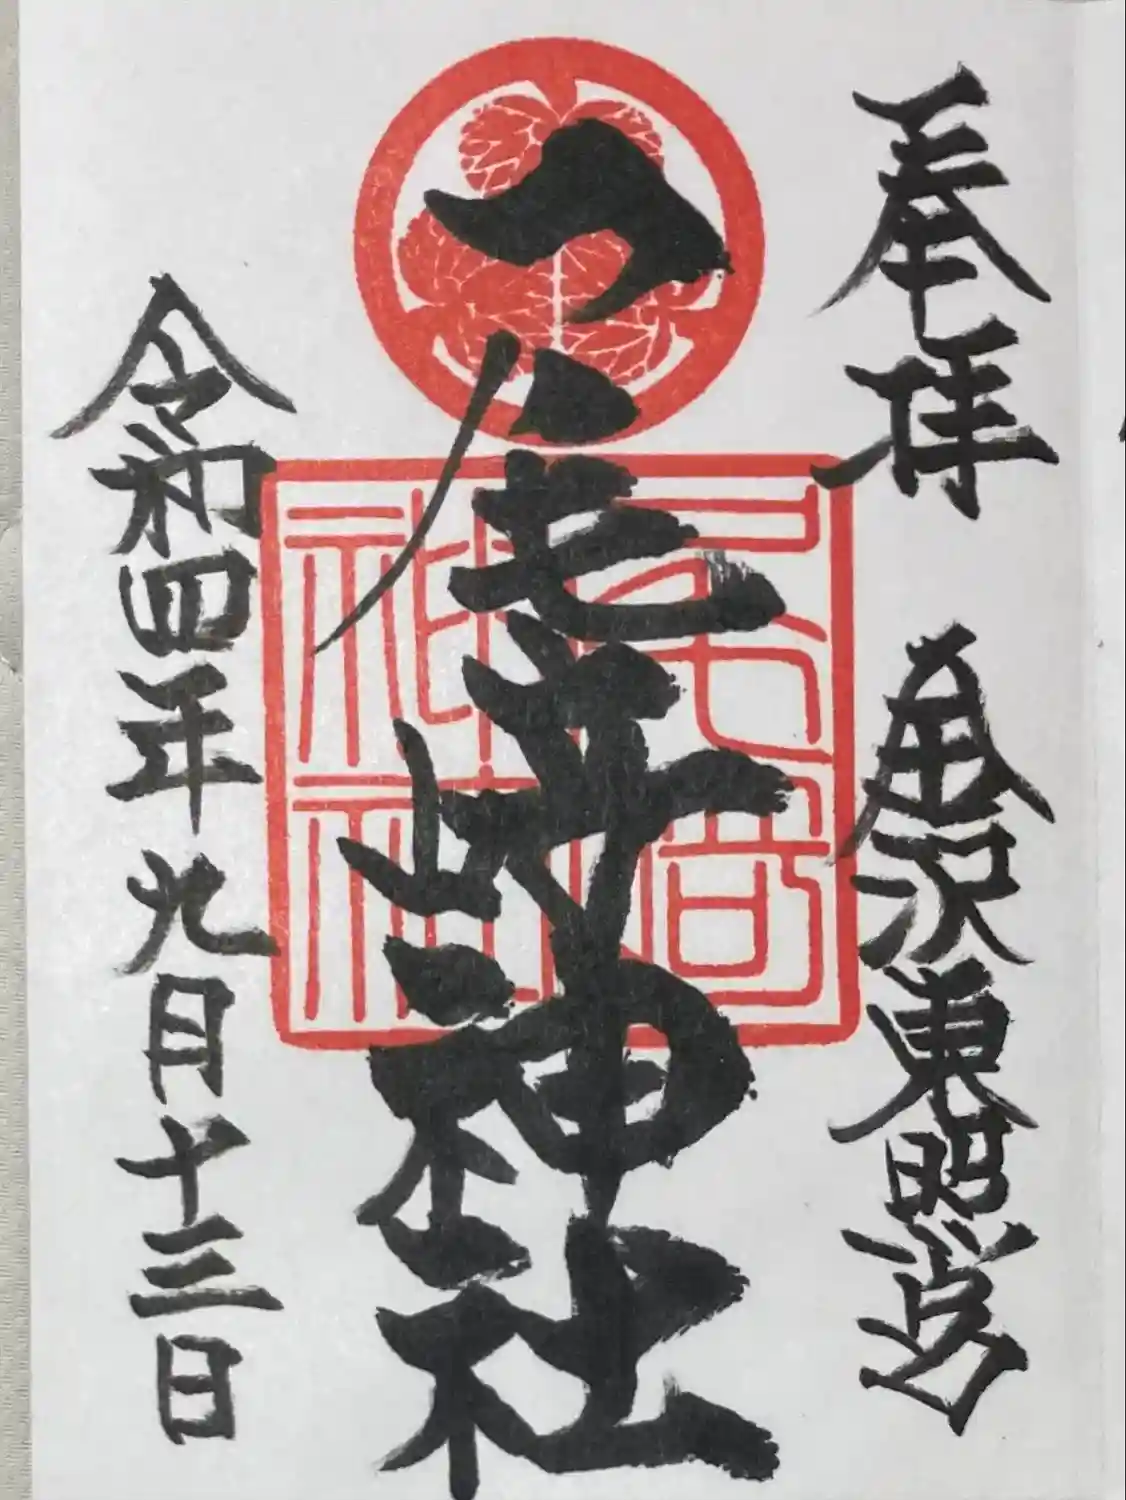 奉拝 金沢東照宮
尾崎神社
令和四年九月十三日
尾崎
神社